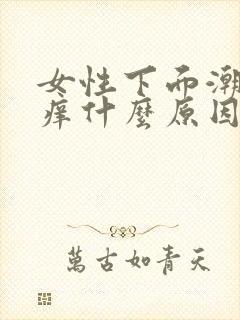 女性下而潮
痒什麽原因
萬古如青天